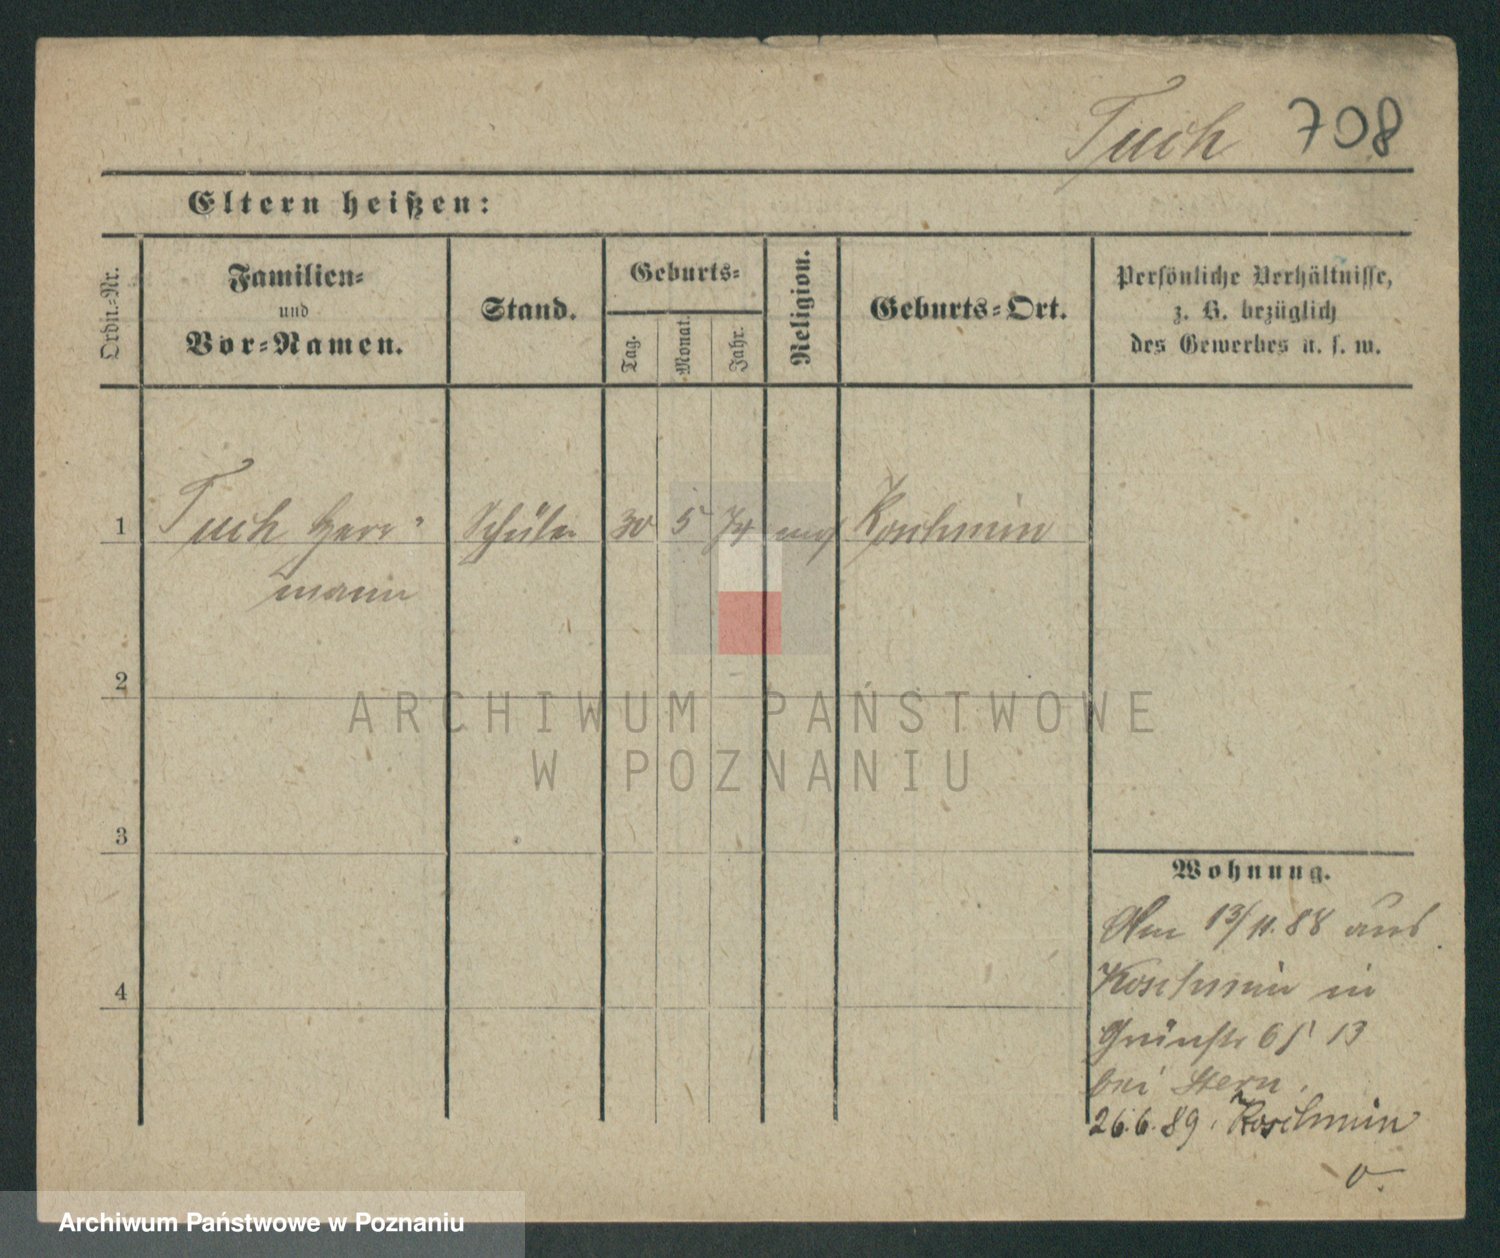 Tuch 708
Eltern heißen:
Ordn.-Nr.
Familien-
und
Vor-Namen.
Stand.
Geburts-
Tag.
Monat.
Jahr.
Religion.
Geburts-Ort.
Persönliche Verhältnisse,
z. B. bezüglich
des Gewerbes u. s. w.
1 Tuch Herr-
mann
Schüler 30 5 74 Koschmin
2
3
4
Wohnung.
Am 13/11.88 aus
Koschmin in
Grünstr 13
bei Stern.
26.6.89. Koschmin
ARCHIWUM PAŃSTWOWE
W POZNANIU
Archiwum Państwowe w Poznaniu